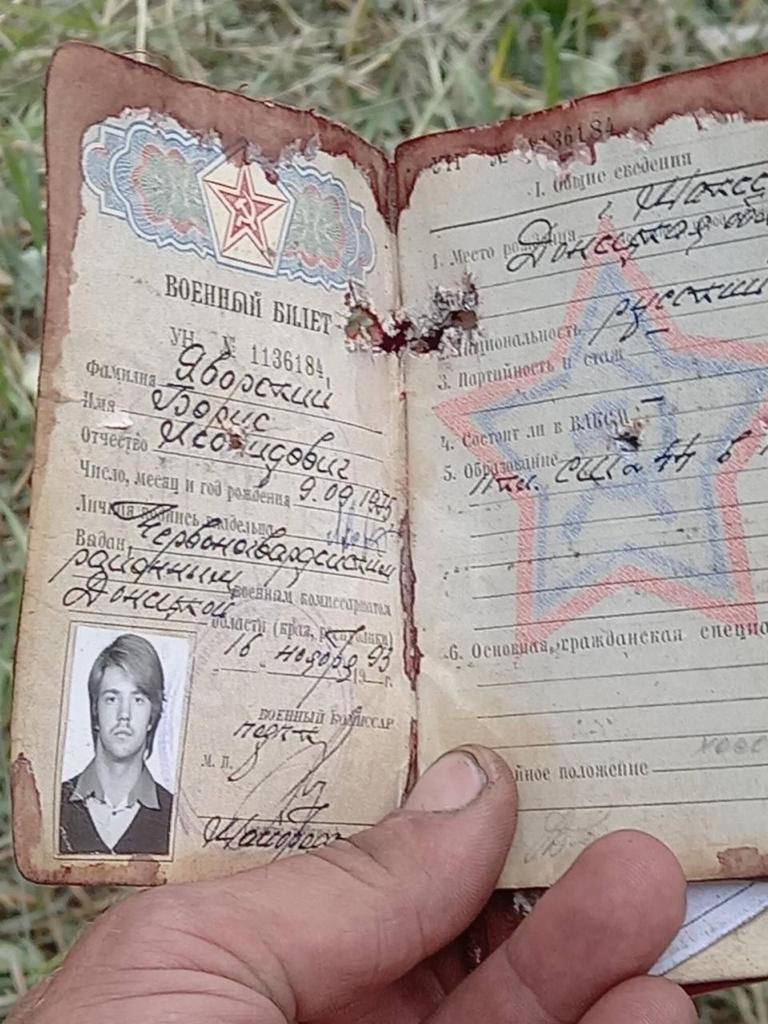 ВОЕННЫЙ БИЛЕТ
УН № 1136184
Фамилия Яворский
Имя Борис
Отчество Леонидович
Число, месяц и год рождения 9.09.1975
Личная подпись владельца
Выдан Червоногвардейским
районным военным комиссариатом
Донецкой
области (края, республики)
16 ноября 1993 г.
ВОЕННЫЙ КОМИССАР
подп
М. П.
Майоров
УН № 1136184
I. Общие сведения
1. Место рождения г.
Донецкая
2. Национальность русский
3. Партийность и стаж –
4. Состоит ли в ВЛКСМ –
5. Образование
44 в
6. Основная гражданская
йное положение